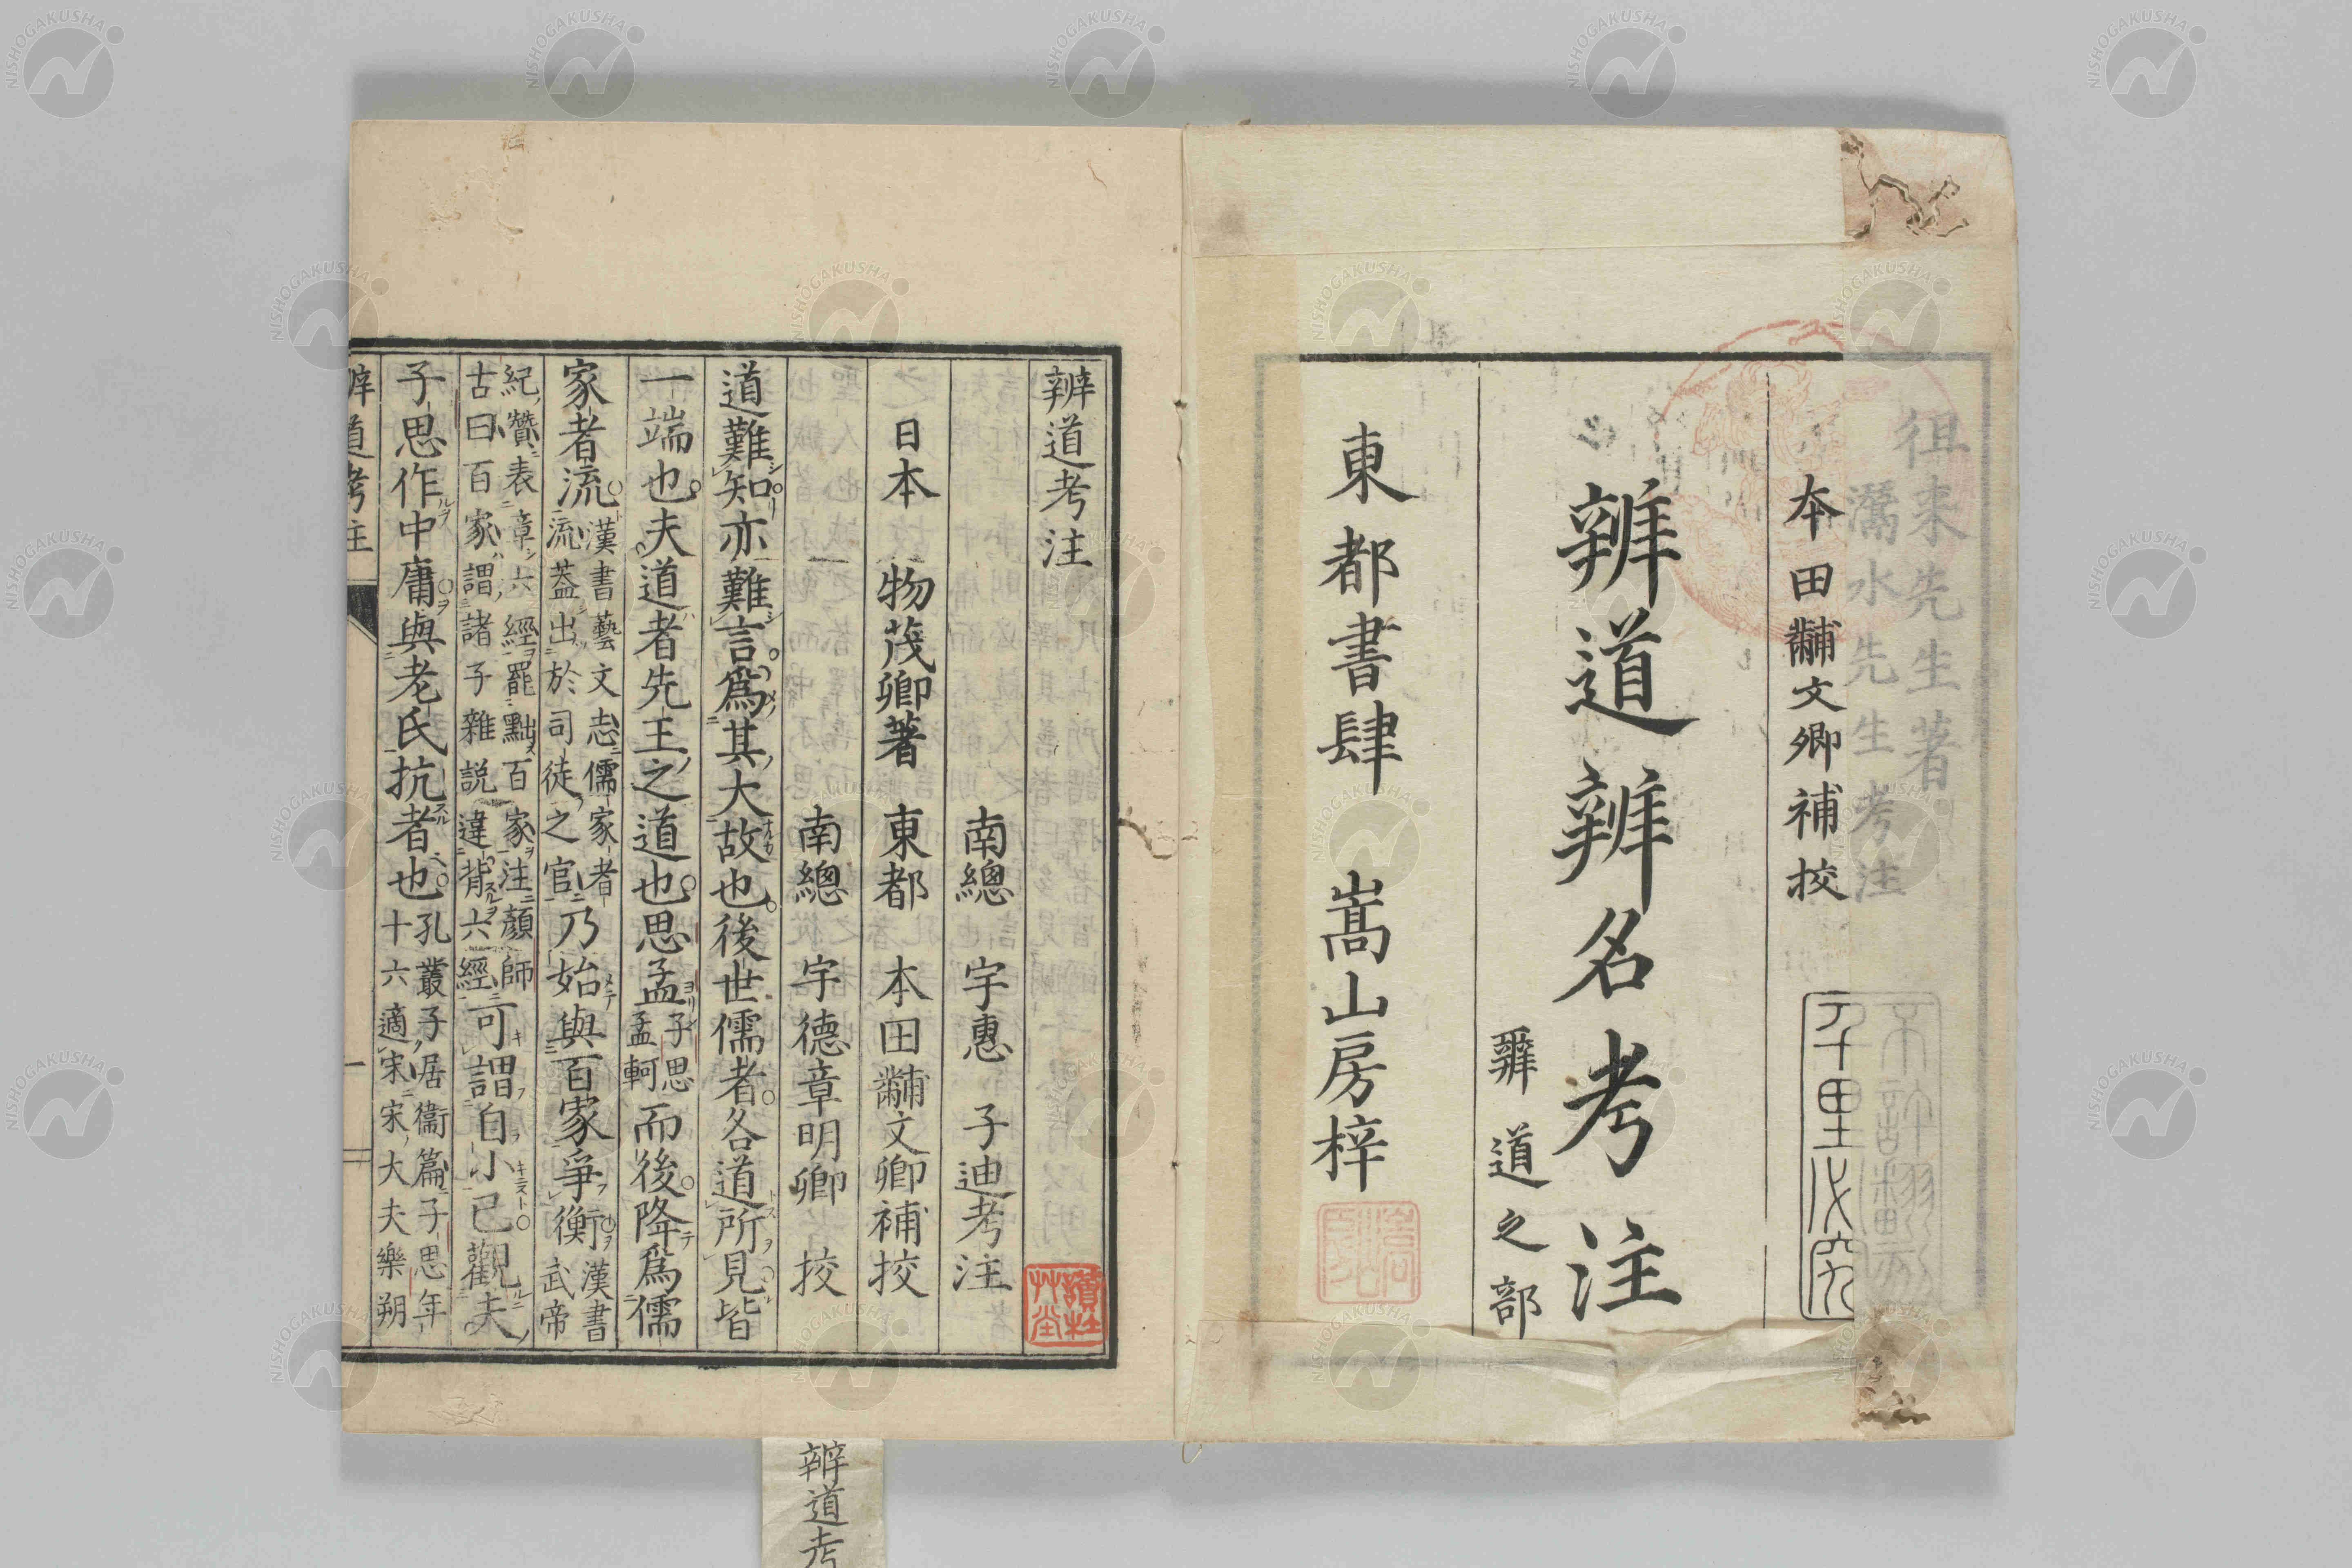 徂来先生著
灊水先生考注
本田黼文卿補校
不許翻刻
千里必究
辨道辨名考注
辨道之部
東都書肆 嵩山房梓
辨道考注
南總 宇惠 子迪考注
日本 物茂卿著 東都 本田黼文卿補校
南總 宇德章明卿 校
道難知亦難言爲其大故也後世儒者各道所見皆
一端也夫道者先王之道也思孟子思孟軻而後降爲儒
家者流漢書藝文志儒家者流蓋出於司徒之官乃始與百家爭衡漢書武帝
紀贊表章六經罷黜百家注顏師古曰百家謂諸子雜説違背六經可謂自小已觀夫
子思作中庸與老氏抗者也孔叢子居衞篇子思年十六適宋宋大夫樂朔
辨道考注
一
讀杜艸堂
辨道考
NISHOGAKUSHA